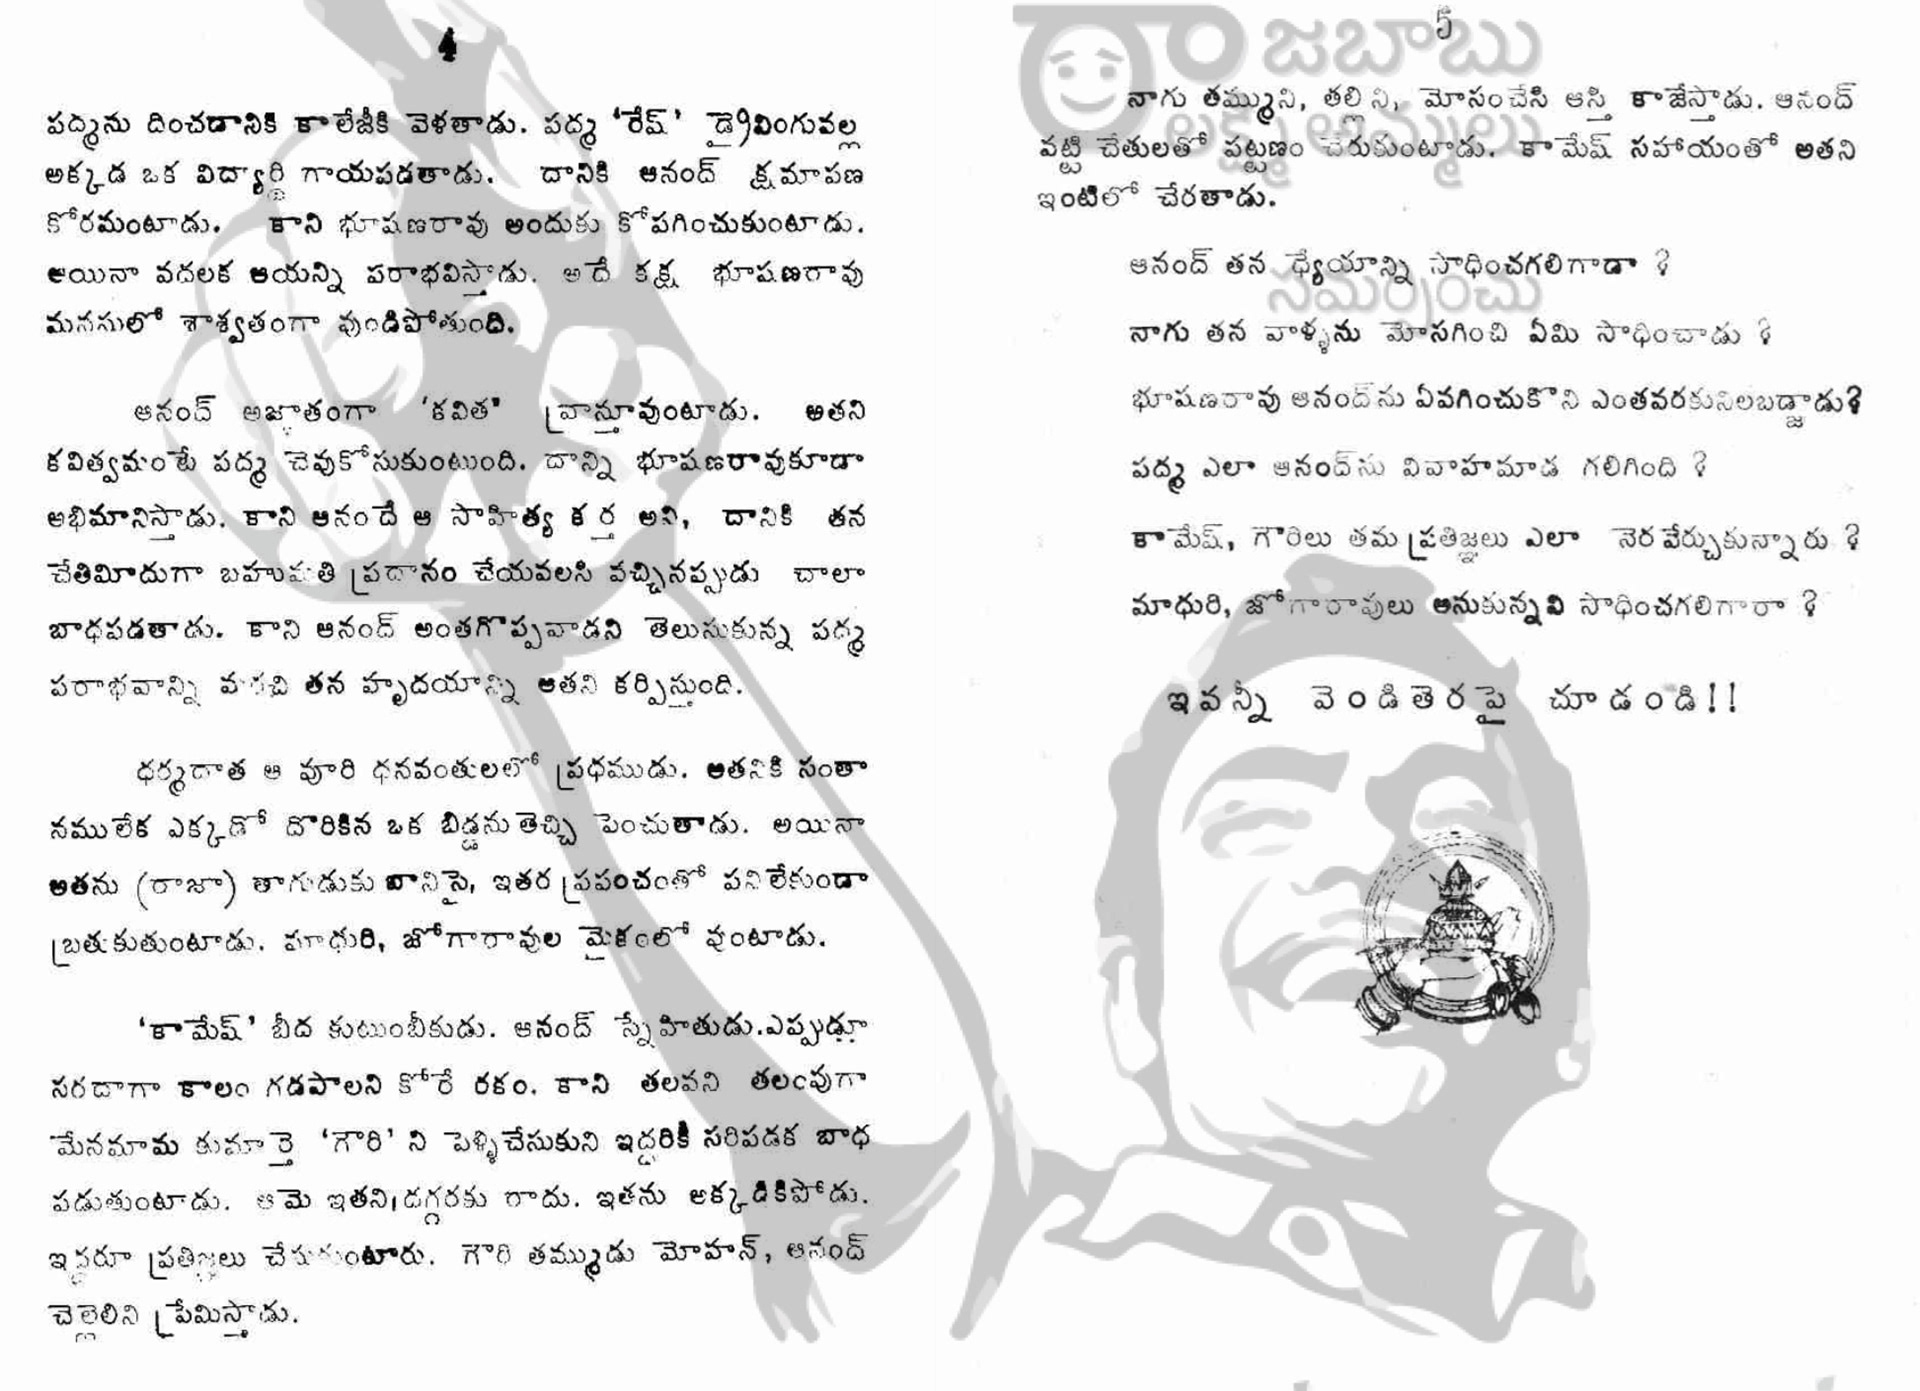 4
పద్మను దించడానికి కాలేజీకి వెళతాడు. పద్మ ‘రేష్’ డ్రైవింగువల్ల
అక్కడ ఒక విద్యార్థి గాయపడతాడు. దానికి ఆనంద్ క్షమాపణ
కోరమంటాడు. కాని భూషణరావు అందుకు కోపగించుకుంటాడు.
అయినా వదలక ఆయన్ని పరాభవిస్తాడు. అదే కక్ష భూషణరావు
మనసులో శాశ్వతంగా వుండిపోతుంది.
ఆనంద్ అజ్ఞాతంగా ‘కవిత’ వ్రాస్తూవుంటాడు. అతని
కవిత్వమంటే పద్మ చెవుకోసుకుంటుంది. దాన్ని భూషణరావుకూడా
అభిమానిస్తాడు. కాని ఆనందే ఆ సాహిత్య కర్త అని, దానికి తన
చేతిమీదుగా బహుమతి ప్రదానం చేయవలసి వచ్చినప్పుడు చాలా
బాధపడతాడు. కాని ఆనంద్ అంతగొప్పవాడని తెలుసుకున్న పద్మ
పరాభవాన్ని మరచి తన హృదయాన్ని అతని కర్పిస్తుంది.
ధర్మదాత ఆ వూరి ధనవంతులలో ప్రధముడు. అతనికి సంతా
నములేక ఎక్కడో దొరికిన ఒక బిడ్డను తెచ్చి పెంచుతాడు. అయినా
అతను (రాజా) తాగుడుకు బానిసై, ఇతర ప్రపంచంతో పనిలేకుండా
బ్రతుకుతుంటాడు. మాధురి, జోగారావుల మైకంలో వుంటాడు.
‘కామేష్’ బీద కుటుంబీకుడు. ఆనంద్ స్నేహితుడు.ఎప్పుడూ
సరదాగా కాలం గడపాలని కోరే రకం. కాని తలవని తలంపుగా
మేనమామ కుమార్తె ‘గౌరి’ ని పెళ్ళిచేసుకుని ఇద్దరికీ సరిపడక బాధ
పడుతుంటాడు. ఆమె ఇతని దగ్గరకు రాదు. ఇతను అక్కడికిపోడు.
ఇద్దరూ ప్రతిజ్ఞలు చేసుకుంటారు. గౌరి తమ్ముడు మోహన్, ఆనంద్
చెల్లెలిని ప్రేమిస్తాడు.
5
రాజబాబు
లక్ష్మీ అమ్మలు
సమర్పించు
నాగు తమ్ముని, తల్లిని, మోసంచేసి ఆస్తి కాజేస్తాడు. ఆనంద్
వట్టి చేతులతో పట్టణం చేరుకుంటాడు. కామేష్ సహాయంతో అతని
ఇంటిలో చేరతాడు.
ఆనంద్ తన ధ్యేయాన్ని సాధించగలిగాడా ?
నాగు తన వాళ్ళను మోసగించి ఏమి సాధించాడు ?
భూషణరావు ఆనంద్‌ను ఏవగించుకొని ఎంతవరకునిలబడ్డాడు?
పద్మ ఎలా ఆనంద్‌ను వివాహమాడ గలిగింది ?
కామేష్, గౌరిలు తమ ప్రతిజ్ఞలు ఎలా నెరవేర్చుకున్నారు ?
మాధురి, జోగారావులు అనుకున్నవి సాధించగలిగారా ?
ఇవన్నీ వెండితెరపై చూడండి!!